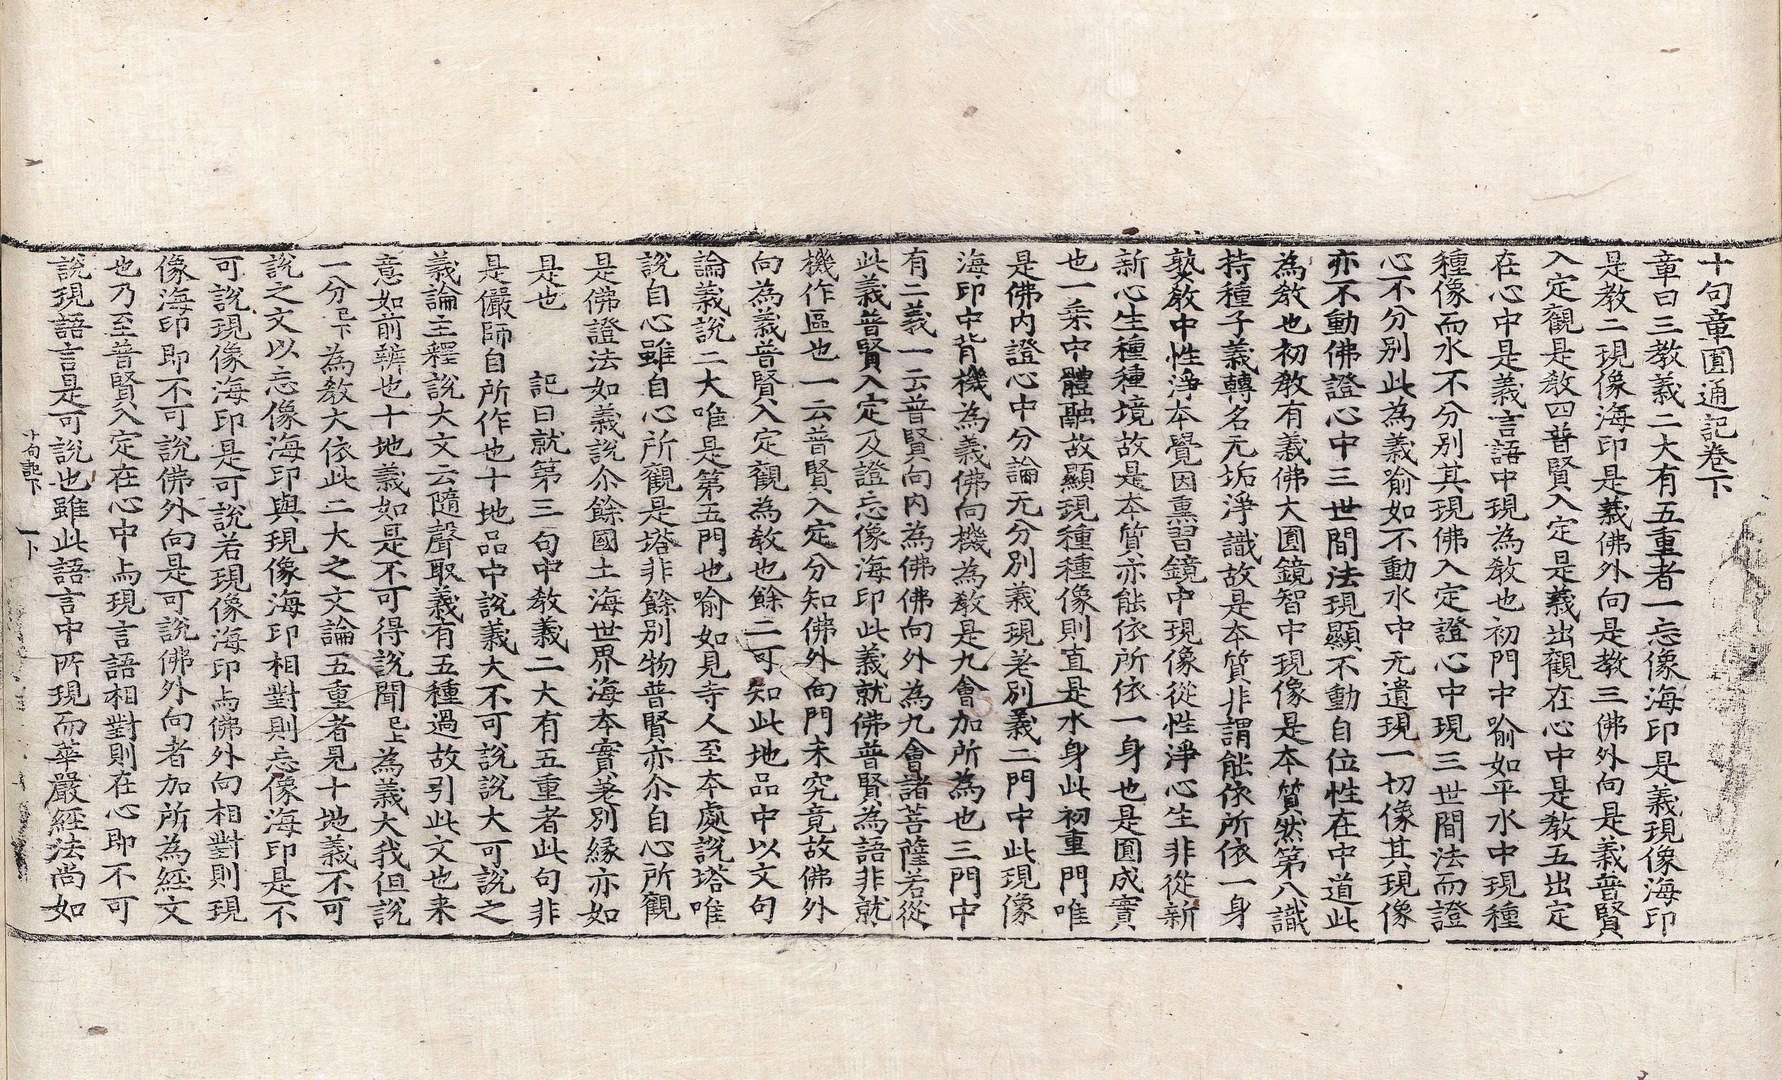 十句章圎通記卷下
章曰三教義二大有五重者一忘像海印是義現像海印
是教二現像海印是義佛外向是教三佛外向是義普賢
入定觀是教四普賢入定是義出觀在心中是教五出定
在心中是義言語中現為教也初門中喻如平水中現種
種像而水不分別其現佛入定證心中現三世間法而證
心不分別此為義喻如不動水中无遺現一切像其現像
亦不動佛證心中三世間法現顯不動自位性在中道此
為教也初教有義佛大圎鏡智中現像是本質然第八識
持種子義轉名无垢淨識故是本質非謂能依所依一身
熟教中性淨本覺因熏習鏡中現像從性淨心生非從新
新心生種種境故是本質亦能依所依一身也是圎成實
也一乘中體融故顯現種種像則直是水身此初重門唯
是佛內證心中分論无分別義現差別義二門中此現像
海印中背機為義佛向機為教是九會加所為也三門中
有二義一云普賢向內為佛佛向外為九會諸菩薩若從
此義普賢入定及證忘像海印此義就佛普賢為語非就
機作區也一云普賢入定分知佛外向門未究竟故佛外
向為義普賢入定觀為教也餘二可知此地品中以文句
論義說二大唯是第五門也喻如見寺人至本處說塔唯
說自心雖自心所觀是塔非餘別物普賢亦尒自心所觀
是佛證法如義說尒餘國土海世界海本實差別緣亦如
是也　　記曰就第三句中教義二大有五重者此句非
是儼師自所作也十地品中說義大不可說說大可說之
義論主釋說大文云隨聲取義有五種過故引此文也来
意如前辨也十地義如是不可得說聞已上為義大我但說
一分已下為教大依此二大之文論五重者見十地義不可
說之文以忘像海印與現像海印相對則忘像海印是不
可說現像海印是可說若現像海印与佛外向相對則現
像海印即不可說佛外向是可說佛外向者加所為經文
也乃至普賢入定在心中与現言語相對則在心即不可
說現語言是可說也雖此語言中所現而華嚴經法尚如
十句記下　一卜